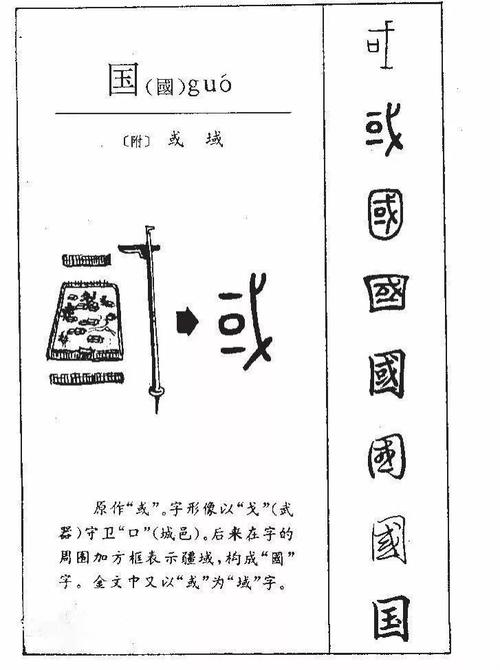 国(國)guó
〔附〕 或 域
原作“或”。字形像以“戈”(武
器)守卫“口”(城邑)。后来在字的
周围加方框表示疆域,构成“國”
字。金文中又以“或”为“域”字。
或
或
國
國
國
國
國
国